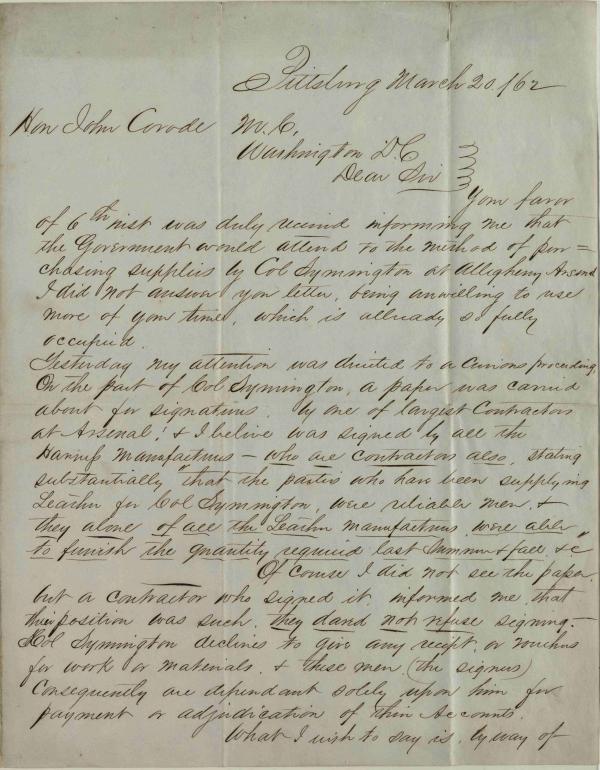 Pittsburg March 20. /62
Hon John Covode M.C,
Washington D.C
Dear Sir
Your favor
of 6th inst was duly received informing me that
the Goverment would attend to the method of pur=
chasing supplies by Col Symington at Allegheny Arsenal
I did not answer you letter, being unwilling to use
more of your time, which is allready so fully
occupied.
Yesterday my attention was directed to a curious proceeding,
On the part of Col Symington, a paper was carried
about for signatures. by one of largest Contractors
at Arsenal! & I belive was signed by all the
Harness Manufacturers – who are contractors also, stating
substantially "that the parties who have been supplying
Leather for Col Symington, were reliable men, &
they alone of all the Leather manufacturers were able
to furnish the quantity required last summer & fall &c"
Of course I did not see the paper.
but a contractor who signed it informed me that
their position was such, they dared not refuse signing. –
Col Symington declines to give any receipt. or vouchers
for work or materials. & these men (the signers)
Consequently are dependant solely upon him for
payment or adjudication of their Accounts.
What I wish to say is, by way of